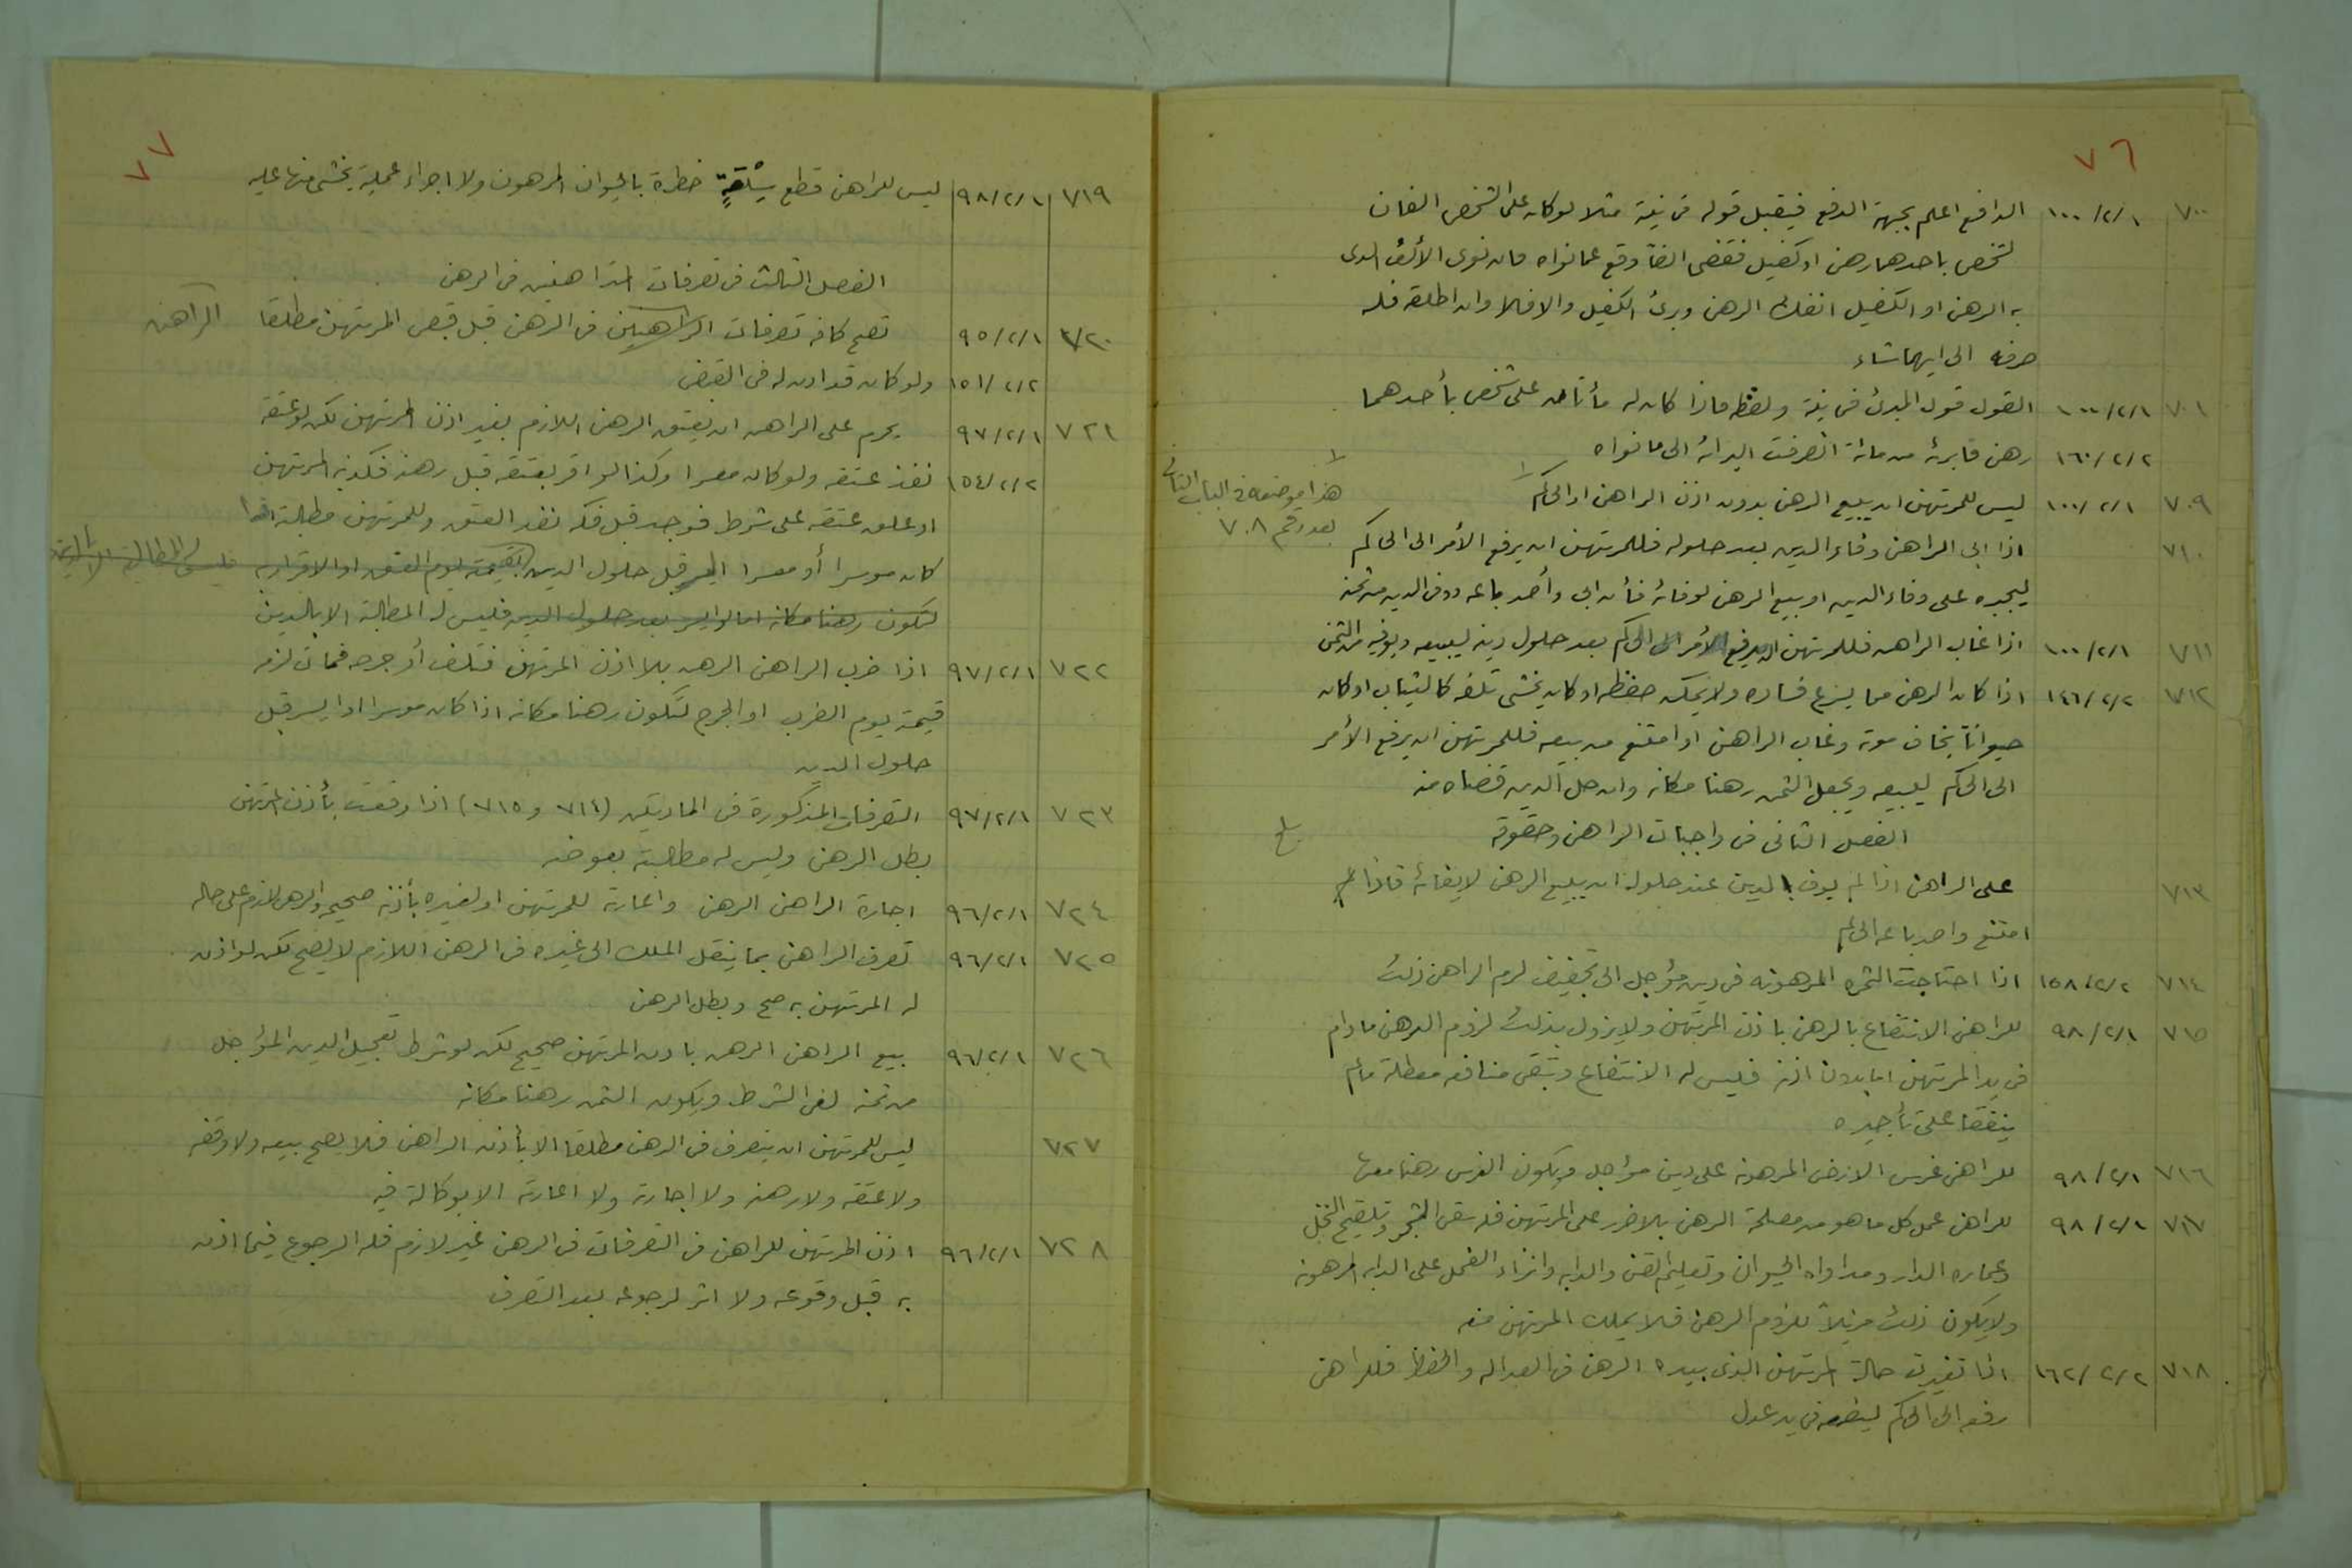 ٧٦
٧٠٠ ١٠٠/٢/١ الدافع اعلم بجهة الدفع فيقبل قوله فى نيته مثلا لو كان على الشخص الفان
لشخص باحدهما رهن او كفيل فقضى الفا وقع عما نواه فان نوى الألف الذى
به الرهن او الكفيل انفك الرهن وبرئ الكفيل والا فلا وان اطلقه فله
صرفه الى ايهما شاء
٧٠١ ١٠٠/٢/١ القول قول المبرئ فى نيته ولفظه فاذا كان له مأتان على شخص بأحدهما
١٦٠/٢/٢ رهن فابرئه من مائة انصرفت البرائه الى ما نواه
٧٠٩ ١٠٠/٢/١ ليس للمرتهن ان يبيع الرهن بدون اذن الراهن او الحاكم
هذا موضعه فى الباب الثانى
بعد رقم ٧٠٨
٧١٠ اذا ابى الراهن وفاء الدين بعد حلوله فللمرتهن ان يرفع الأمر الى الحاكم
ليجبره على وفاء الدين او بيع الرهن لوفائه فأن ابى وأصر باعه ووفى الدين من ثمنه
٧١١ ١٠٠/٢/١ اذا غاب الراهن فللمرتهن ان يرفع الأمر الى الحاكم بعد حلول دينه ليبيعه ويوفيه من الثمن
٧١٢ ١٤٦/٢/٢ اذا كان الرهن مما يسرع فساده ولا يمكن حفظه او كان يخشى تلفه كالثياب او كان
حيوانا يخاف موته وغاب الراهن او امتنع من بيعه فللمرتهن ان يرفع الأمر
الى الحاكم ليبيعه ويجعل الثمن رهنا مكانه وان حل الدين قضاه منه
الفصل الثانى فى واجبات الراهن وحقوقه
٧١٣ على الراهن اذا لم يوف الدين عند حلوله ان يبيع الرهن لايفائه فاذا
امتنع واصر باعه الحاكم
٧١٤ ١٥٨/٢/٢ اذا احتاجت الثمره المرهونه فى دين مؤجل الى تجفيف لزم الراهن ذلك
٧١٥ ٩٨/٢/١ للراهن الانتفاع بالرهن باذن المرتهن ولا يزول بذلك لزوم الرهن مادام
فى يد المرتهن اما بدون اذنه فليس له الانتفاع وتبقى منافعه معطلة مالم
يتفقا على تأجيره
٧١٦ ٩٨/٢/١ للراهن غرس الارض المرهونه على دين مؤجل ويكون الغرس رهنا معها
٧١٧ ٩٨/٢/١ للراهن عمل كل ما هو من مصلحة الرهن بلا ضرر على المرتهن فله سقى الشجر وتلقيح النخل
وعماره الدار ومداواه الحيوان وتعليم القن والدابه وانزاء الفحل على الدابه المرهونه
ولا يكون ذلك مزيلاً للزوم الرهن فلا يملك المرتهن منعه
٧١٨ ١٦٢/٢/٢ اذا تغيرت حالة المرتهن الذى بيده الرهن فى العداله والحفظ فللراهن
رفعه الى الحاكم ليضعه فى يد عدل
٧٧
٧١٩ ٩٨/٢/١ ليس للراهن قطع سِلْعَةٍ خطرة بالحيوان المرهون ولا اجراء عملية يخشى منها عليه
الفصل الثالث فى تصرفات المتراهنين فى الرهن
٧٢٠ ٩٥/٢/١ تصح كافه تصرفات الراهنين فى الرهن قبل قبض المرتهن مطلقا
الراهن
١٥١/٢/٢ ولو كان قد اذن له فى القبض
٧٢١ ٩٧/٢/١ يحرم على الراهن ان يعتق الرهن اللازم بغير اذن المرتهن لكن لو عتقه
١٥٤/٢/٢ نفذ عتقه ولو كان معسرا وكذا لو اقر بعتقه قبل رهنه فكذبه المرتهن
او علق عتقه على شرط فوجد قبل فكه نفذ العتق وللمرتهن مطالبة
كان موسرا أو معسرا ايسر قبل حلول الدين بقيمته يوم العتق او الاقرار به
لتكون رهنا مكانه اما لو ايسر بعد حلول الدين فليس له المطالبة الا بالدين
٧٢٢ ٩٧/٢/١ اذا ضرب الراهن الرهن بلا اذن المرتهن فتلف أو جرحه فمات لزمه
قيمته يوم الضرب او الجرح لتكون رهنا مكانه اذا كان موسرا او ايسر قبل
حلول الدين
٧٢٣ ٩٧/٢/١ التصرفات المذكورة فى المادتين (٧١٤ و ٧١٥) اذا وقعت بأذن المرتهن
بطل الرهن وليس له مطالبته بعوضه
٧٢٤ ٩٦/٢/١ اجارة الراهن الرهن واعارته للمرتهن او لغيره بأذنه صحيح والرهن لازم على حاله
٧٢٥ ٩٦/٢/١ تصرف الراهن بما ينقل الملك الى غيره فى الرهن اللازم لا يصح لكن لو اذن
له المرتهن به صح وبطل الرهن
٧٢٦ ٩٦/٢/١ بيع الراهن الرهن باذن المرتهن صحيح لكن لو شرط تعجيل الدين المؤجل
من ثمنه لغى الشرط ويكون الثمن رهنا مكانه
٧٢٧ ليس للمرتهن ان يتصرف فى الرهن مطلقا الا بأذن الراهن فلا يصح بيعه ولا وقفه
ولا عتقه ولا رهنه ولا اجارته ولا اعارته الا بوكالة فيه
٧٢٨ ٩٦/٢/١ اذن المرتهن للراهن فى التصرفات فى الرهن غير لازم فله الرجوع فيما اذن
به قبل وقوعه ولا اثر لرجوعه بعد التصرف